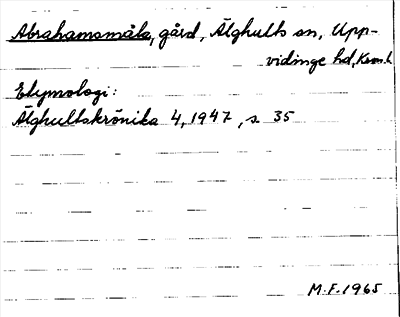 Abrahamsmåla, gård, Älghults sn, Upp-
vidinge hd, Kron.l.
Etymologi:
Älghultskrönika 4, 1947, s. 35
M.F. 1965